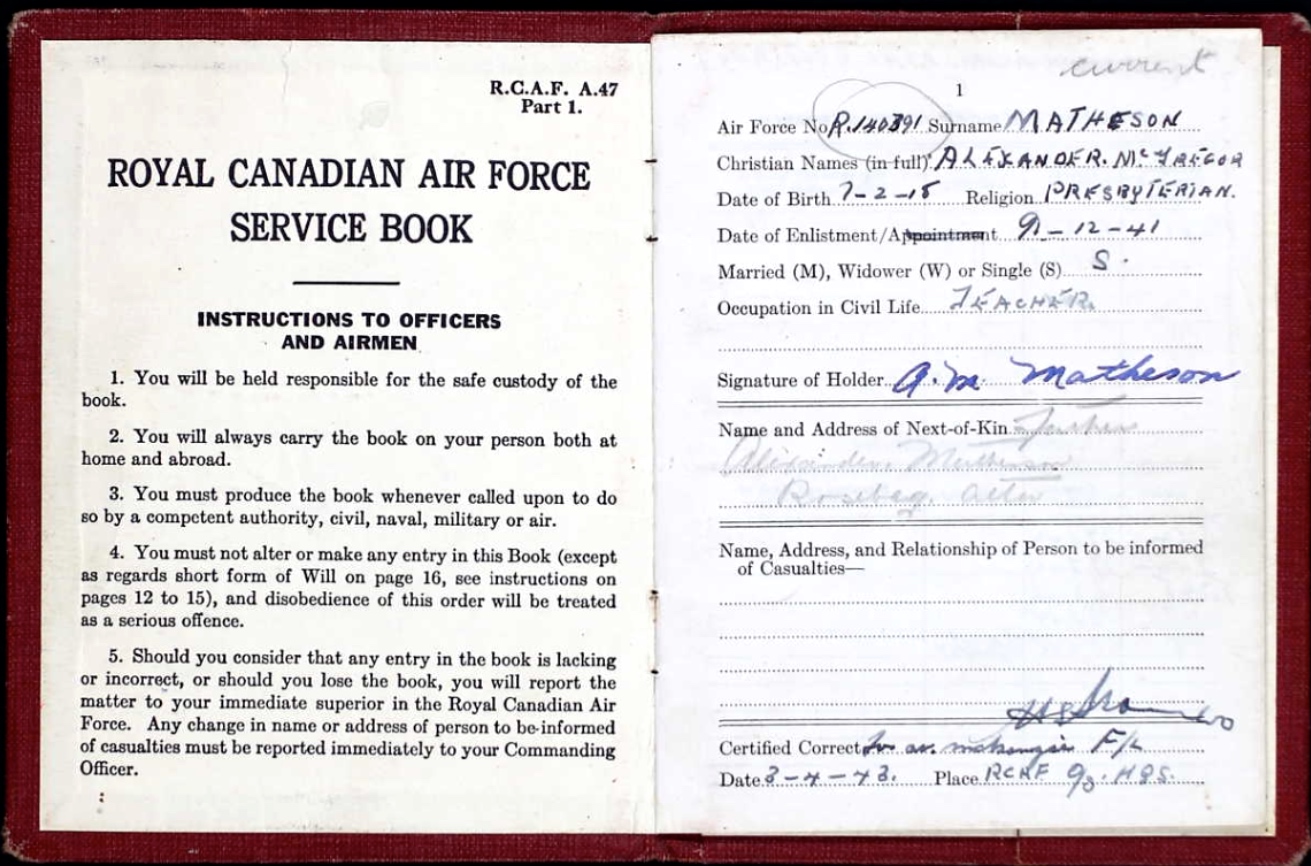 R.C.A.F. A.47
Part 1.
ROYAL CANADIAN AIR FORCE
SERVICE BOOK
INSTRUCTIONS TO OFFICERS
AND AIRMEN
1. You will be held responsible for the safe custody of the
book.
2. You will always carry the book on your person both at
home and abroad.
3. You must produce the book whenever called upon to do
so by a competent authority, civil, naval, military or air.
4. You must not alter or make any entry in this Book (except
as regards short form of Will on page 16, see instructions on
pages 12 to 15), and disobedience of this order will be treated
as a serious offence.
5. Should you consider that any entry in the book is lacking
or incorrect, or should you lose the book, you will report the
matter to your immediate superior in the Royal Canadian Air
Force. Any change in name or address of person to be informed
of casualties must be reported immediately to your Commanding
Officer.
current
1
Air Force No. R.140391 Surname MATHESON
Christian Names (in full) ALEXANDER. McGREGOR
Date of Birth 7-2-18 Religion PRESBYTERIAN.
Date of Enlistment/Appointment 9-12-41
Married (M), Widower (W) or Single (S) S.
Occupation in Civil Life TEACHER.
Signature of Holder A.M. Matheson
Name and Address of Next-of-Kin Father
Alexander Matheson
Rosebay. Alta
Name, Address, and Relationship of Person to be informed
of Casualties—
Certified Correct F/L
Date 3-4-43. Place RCAF O/S. HQS.